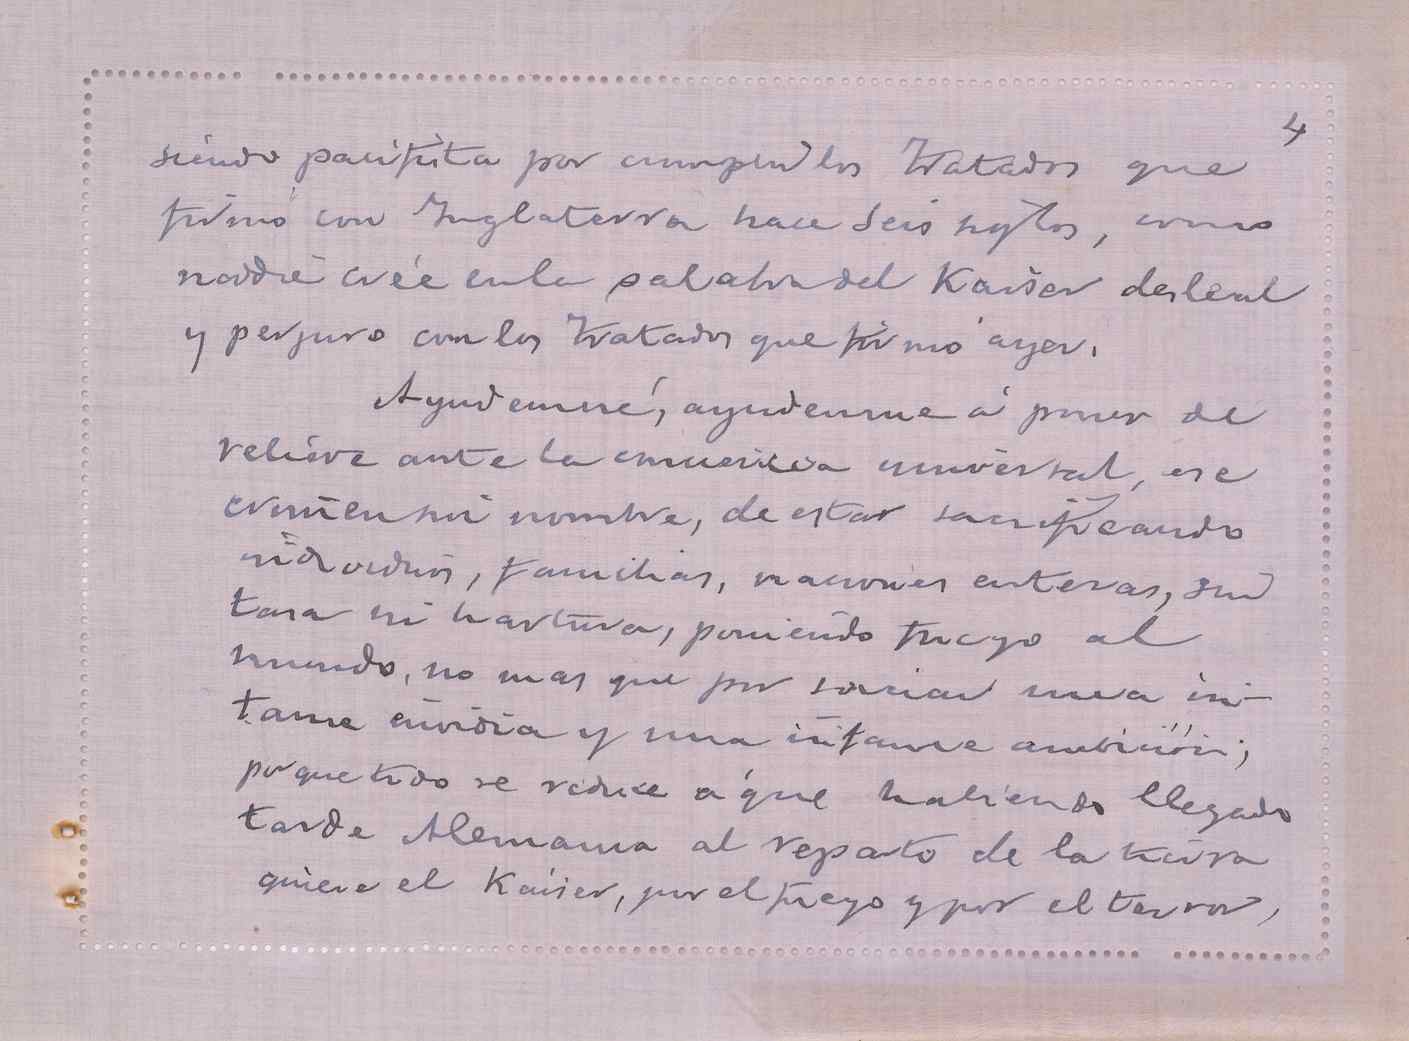 4
siendo pacifista por cumplir los Tratados que
firmó con Inglaterra hace Seis siglos, como
nadie crée en la palabra del Kaiser desleal
y perjuro con los Tratados que firmó ayer.
Ayudenme, ayudenme á poner de
relieve ante la conciencia universal, ese
crimen sin nombre, de estar sacrificando
individuos, familias, naciones enteras, sin
tasa ni hartura, poniendo fuego al
mundo, no mas que por saciar una in-
fame envidia y una infame ambición;
porque todo se reduce a que habiendo llegado
tarde Alemania al reparto de la tierra
quiere el Kaiser, por el fuego y por el terror,